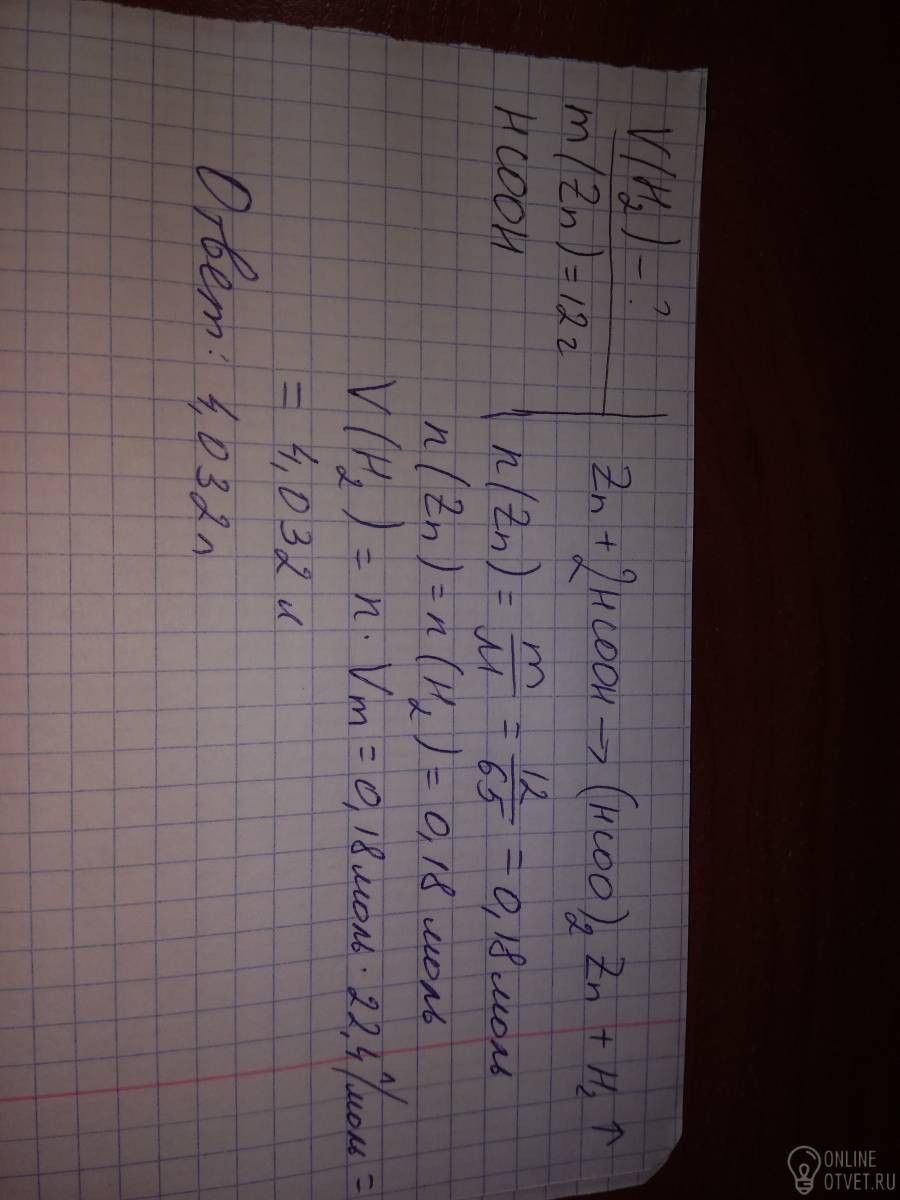 V(H₂) - ?
m(Zn) = 12 г
HCOOH
Zn + 2HCOOH → (HCOO)₂Zn + H₂↑
n(Zn) = m/M = 12/65 = 0,18 моль
n(Zn) = n(H₂) = 0,18 моль
V(H₂) = n · Vm = 0,18 моль · 22,4 л/моль =
= 4,032 л
Ответ: 4,032 л
ONLINE
OTVET.RU